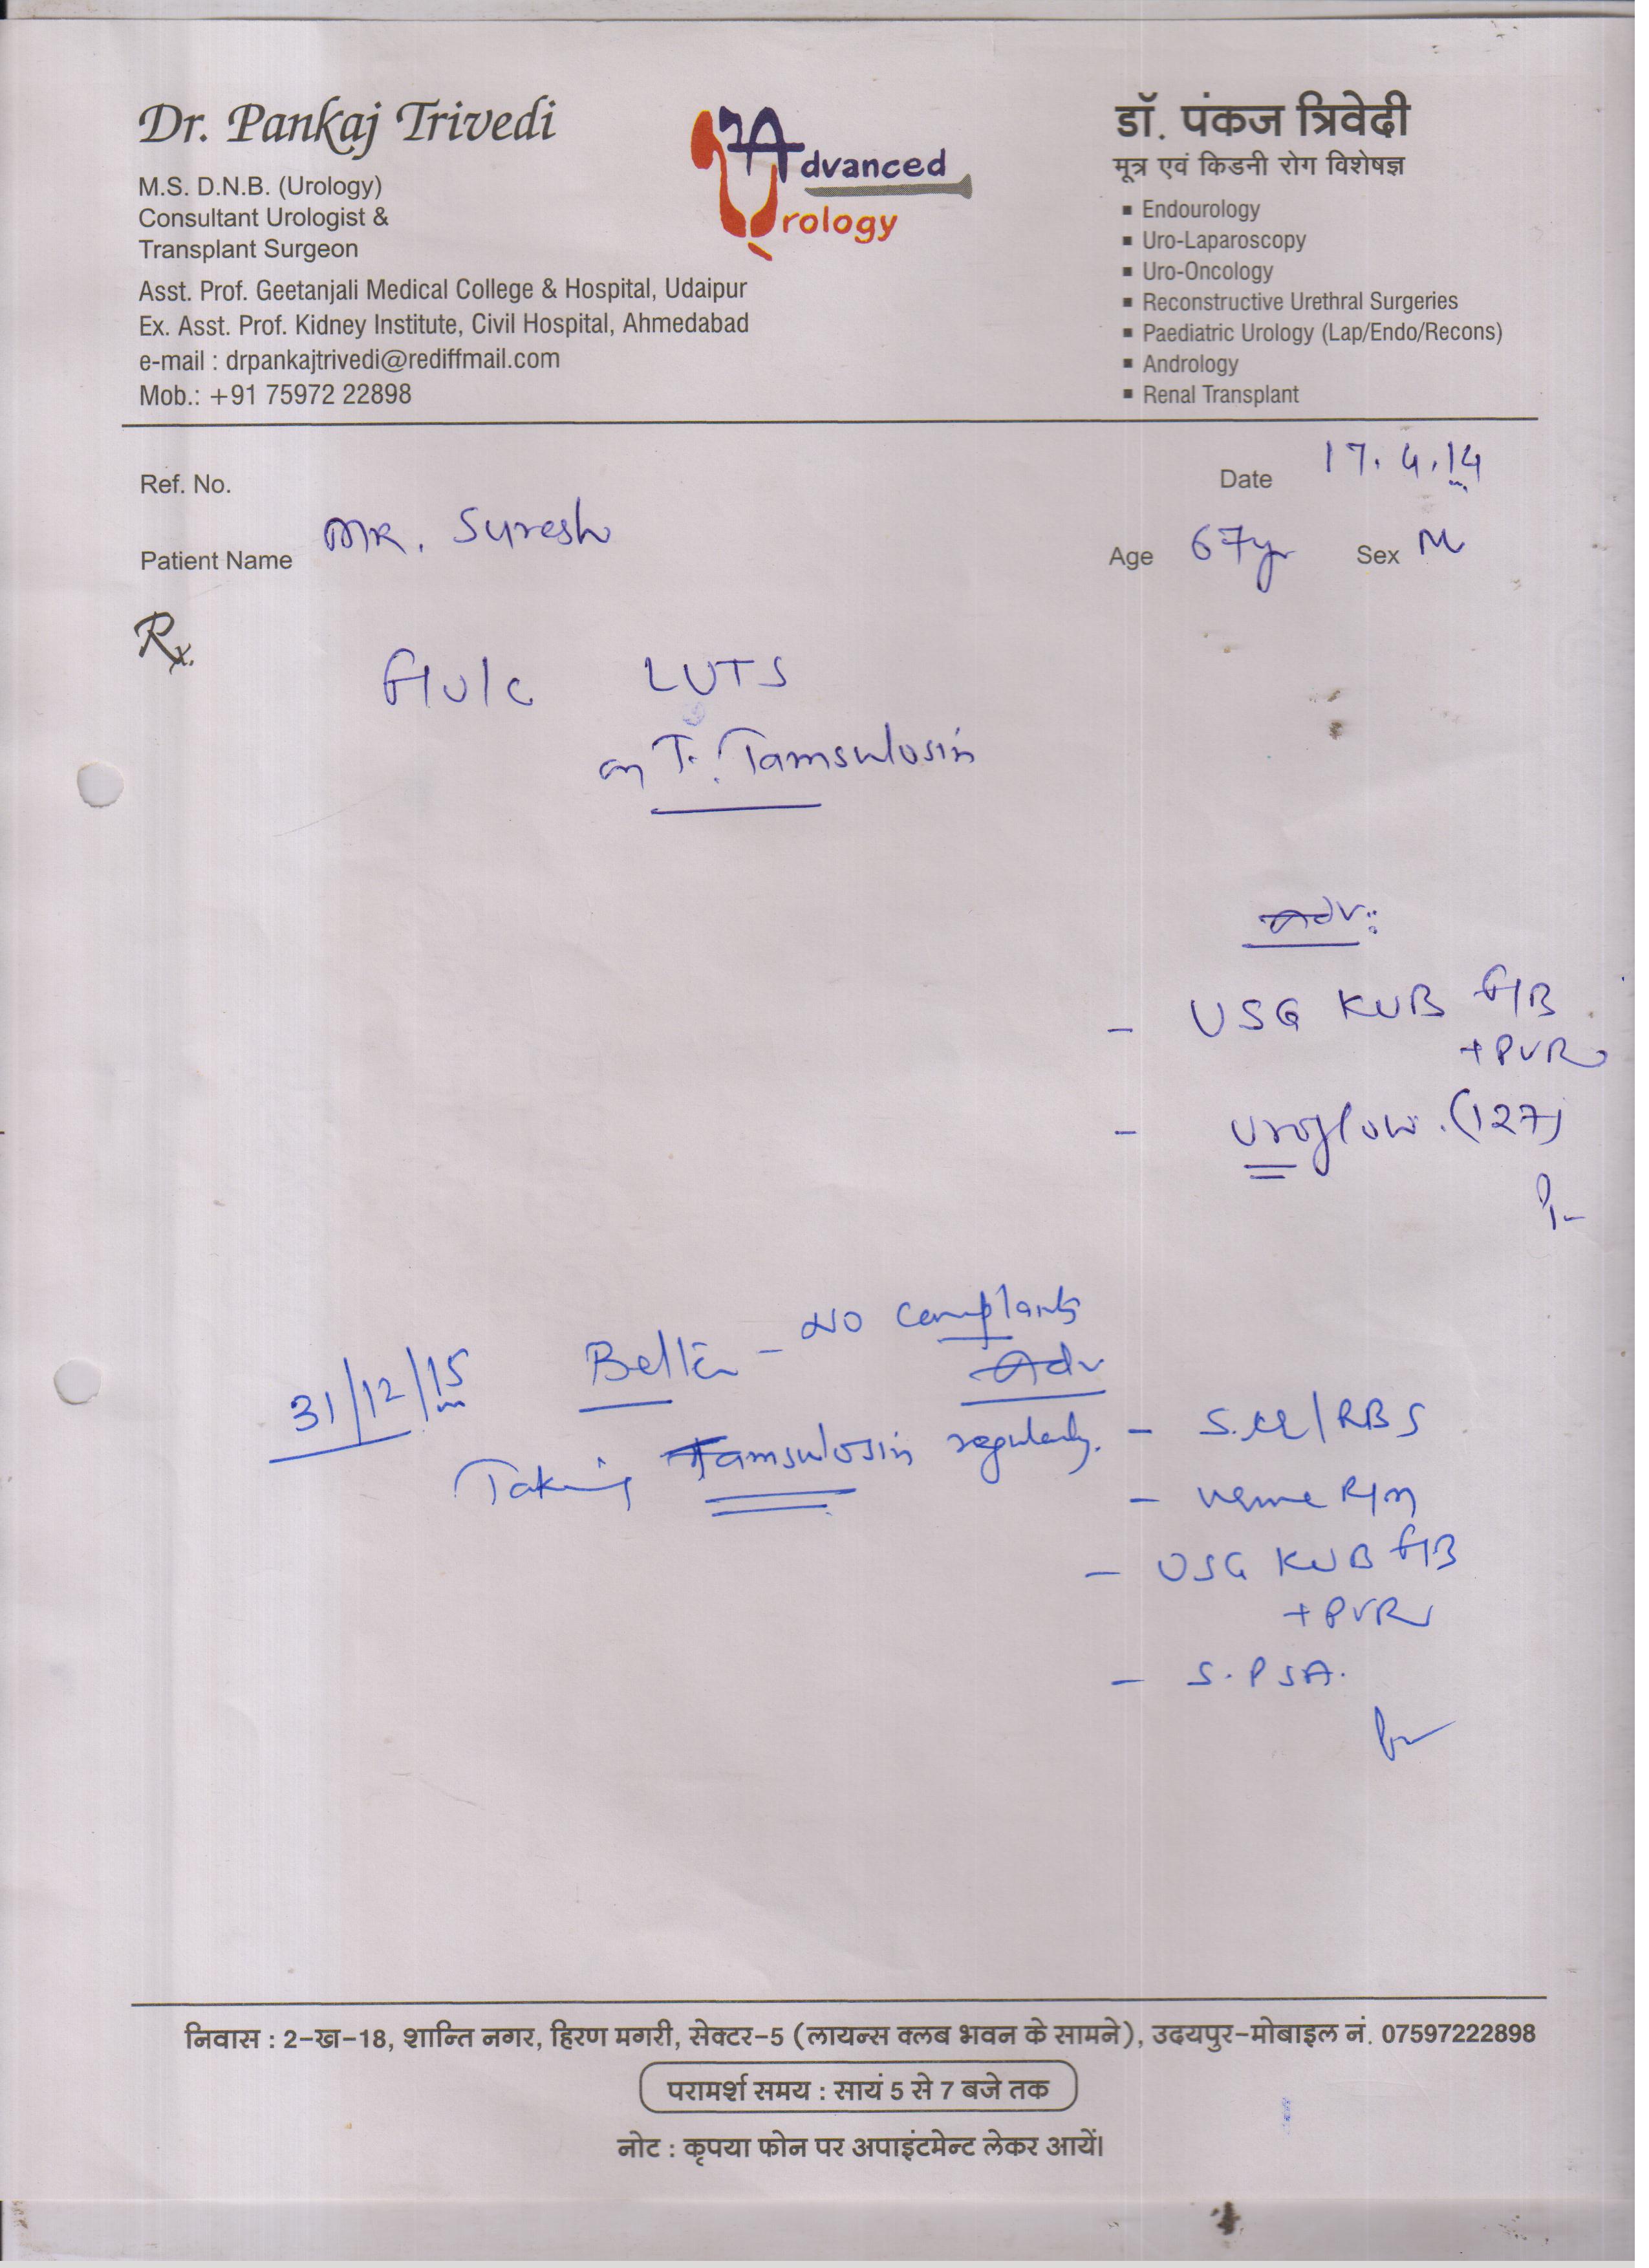 Dr. Pankaj Trivedi
M.S. D.N.B. (Urology)
Consultant Urologist &
Transplant Surgeon
Asst. Prof. Geetanjali Medical College & Hospital, Udaipur
Ex. Asst. Prof. Kidney Institute, Civil Hospital, Ahmedabad
e-mail : drpankajtrivedi@rediffmail.com
Mob.: +91 75972 22898
Advanced
Urology
डॉ. पंकज त्रिवेदी
मूत्र एवं किडनी रोग विशेषज्ञ
▪ Endourology
▪ Uro-Laparoscopy
▪ Uro-Oncology
▪ Reconstructive Urethral Surgeries
▪ Paediatric Urology (Lap/Endo/Recons)
▪ Andrology
▪ Renal Transplant
Ref. No.
Date 17.4.14
Patient Name MR. Suresh
Age 67yr Sex M
Rx.
F/U/C LUTS
on T. Tamsulosin
Adv:
- USG KUB F/B
+ PVR
- Uroflow. (127)
31/12/15 Better - NO complaints
Taking Tamsulosin regularly.
Adv
- S.Cr/RBS
- Urine R/M
- USG KUB F/B
+ PVR
- S. PSA.
निवास : 2-ख-18, शान्ति नगर, हिरण मगरी, सेक्टर-5 (लायन्स क्लब भवन के सामने), उदयपुर-मोबाइल नं. 07597222898
परामर्श समय : सायं 5 से 7 बजे तक
नोट : कृपया फोन पर अपाइंटमेन्ट लेकर आयें।